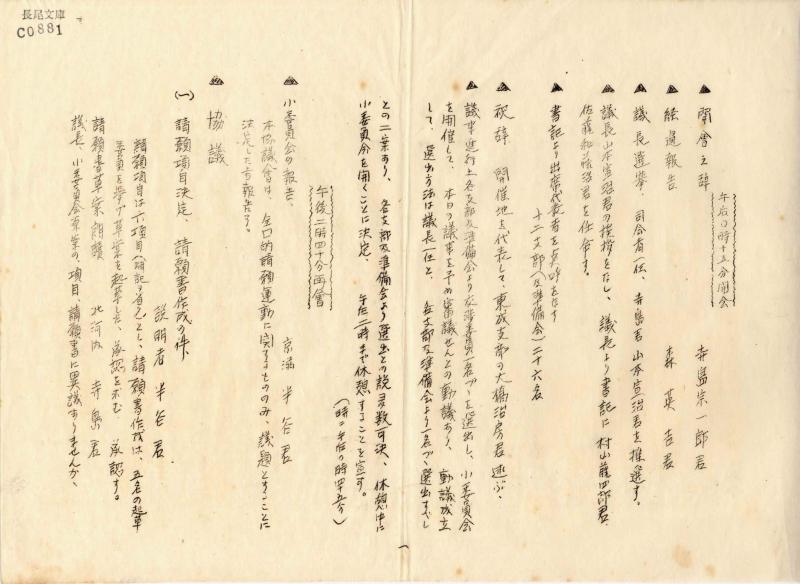 長尾文庫
C0881
午后〇時十五分開会
▲開會之辞 寺島宗一郎君
▲経過報告 森英吉君
▲議長選挙、司会者一任、寺島君 山本宣治君を推選す。
議長山本宣治君の挨拶をなし、議長より書記に 村山藤四郎君、
佐藤和 君を任命す。
▲書記より出席代表者を点呼をなす
十二支部(及準備会)二十六名
▲祝辞 開催地を代表して、東成支部の大橋治房君述ぶ、
▲議事進行上各支部及準備会より 委員一名づゝを選出し、小委員会
を開催して、本日の議事を予め審議せんとの動議あり、動議成立
して、選出方法は議長一任と、各支部及準備会より一名づゝ選出すべし
との二案あり、各支部及準備会より選出との説多数可決、休憩中に
小委員会を開くことに決定、午后二時まで休憩することを宣す。
(時二午后〇時四五分)
午后二時四十分再會
▲小委員会の報告、京滋 半谷君
本協議会は、全国的請願運動に関するもののみ、議題とすることに
決定した旨報告する。
▲協議
(一)請願項目決定、請願書作成の件
説明者 半谷君
請願項目は六項目( )とし、請願書作成は、五名の起草
委員を挙げ草案を起草した、承認を求む 承認する。
請願書草案朗読 北河内 寺島君
議長、小委員会原案の、項目、請願書に異議ありませんか、